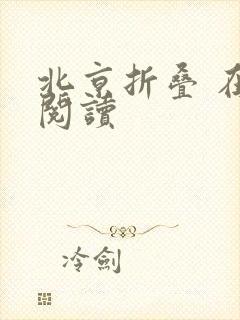 北京折叠
閱讀
冷劍